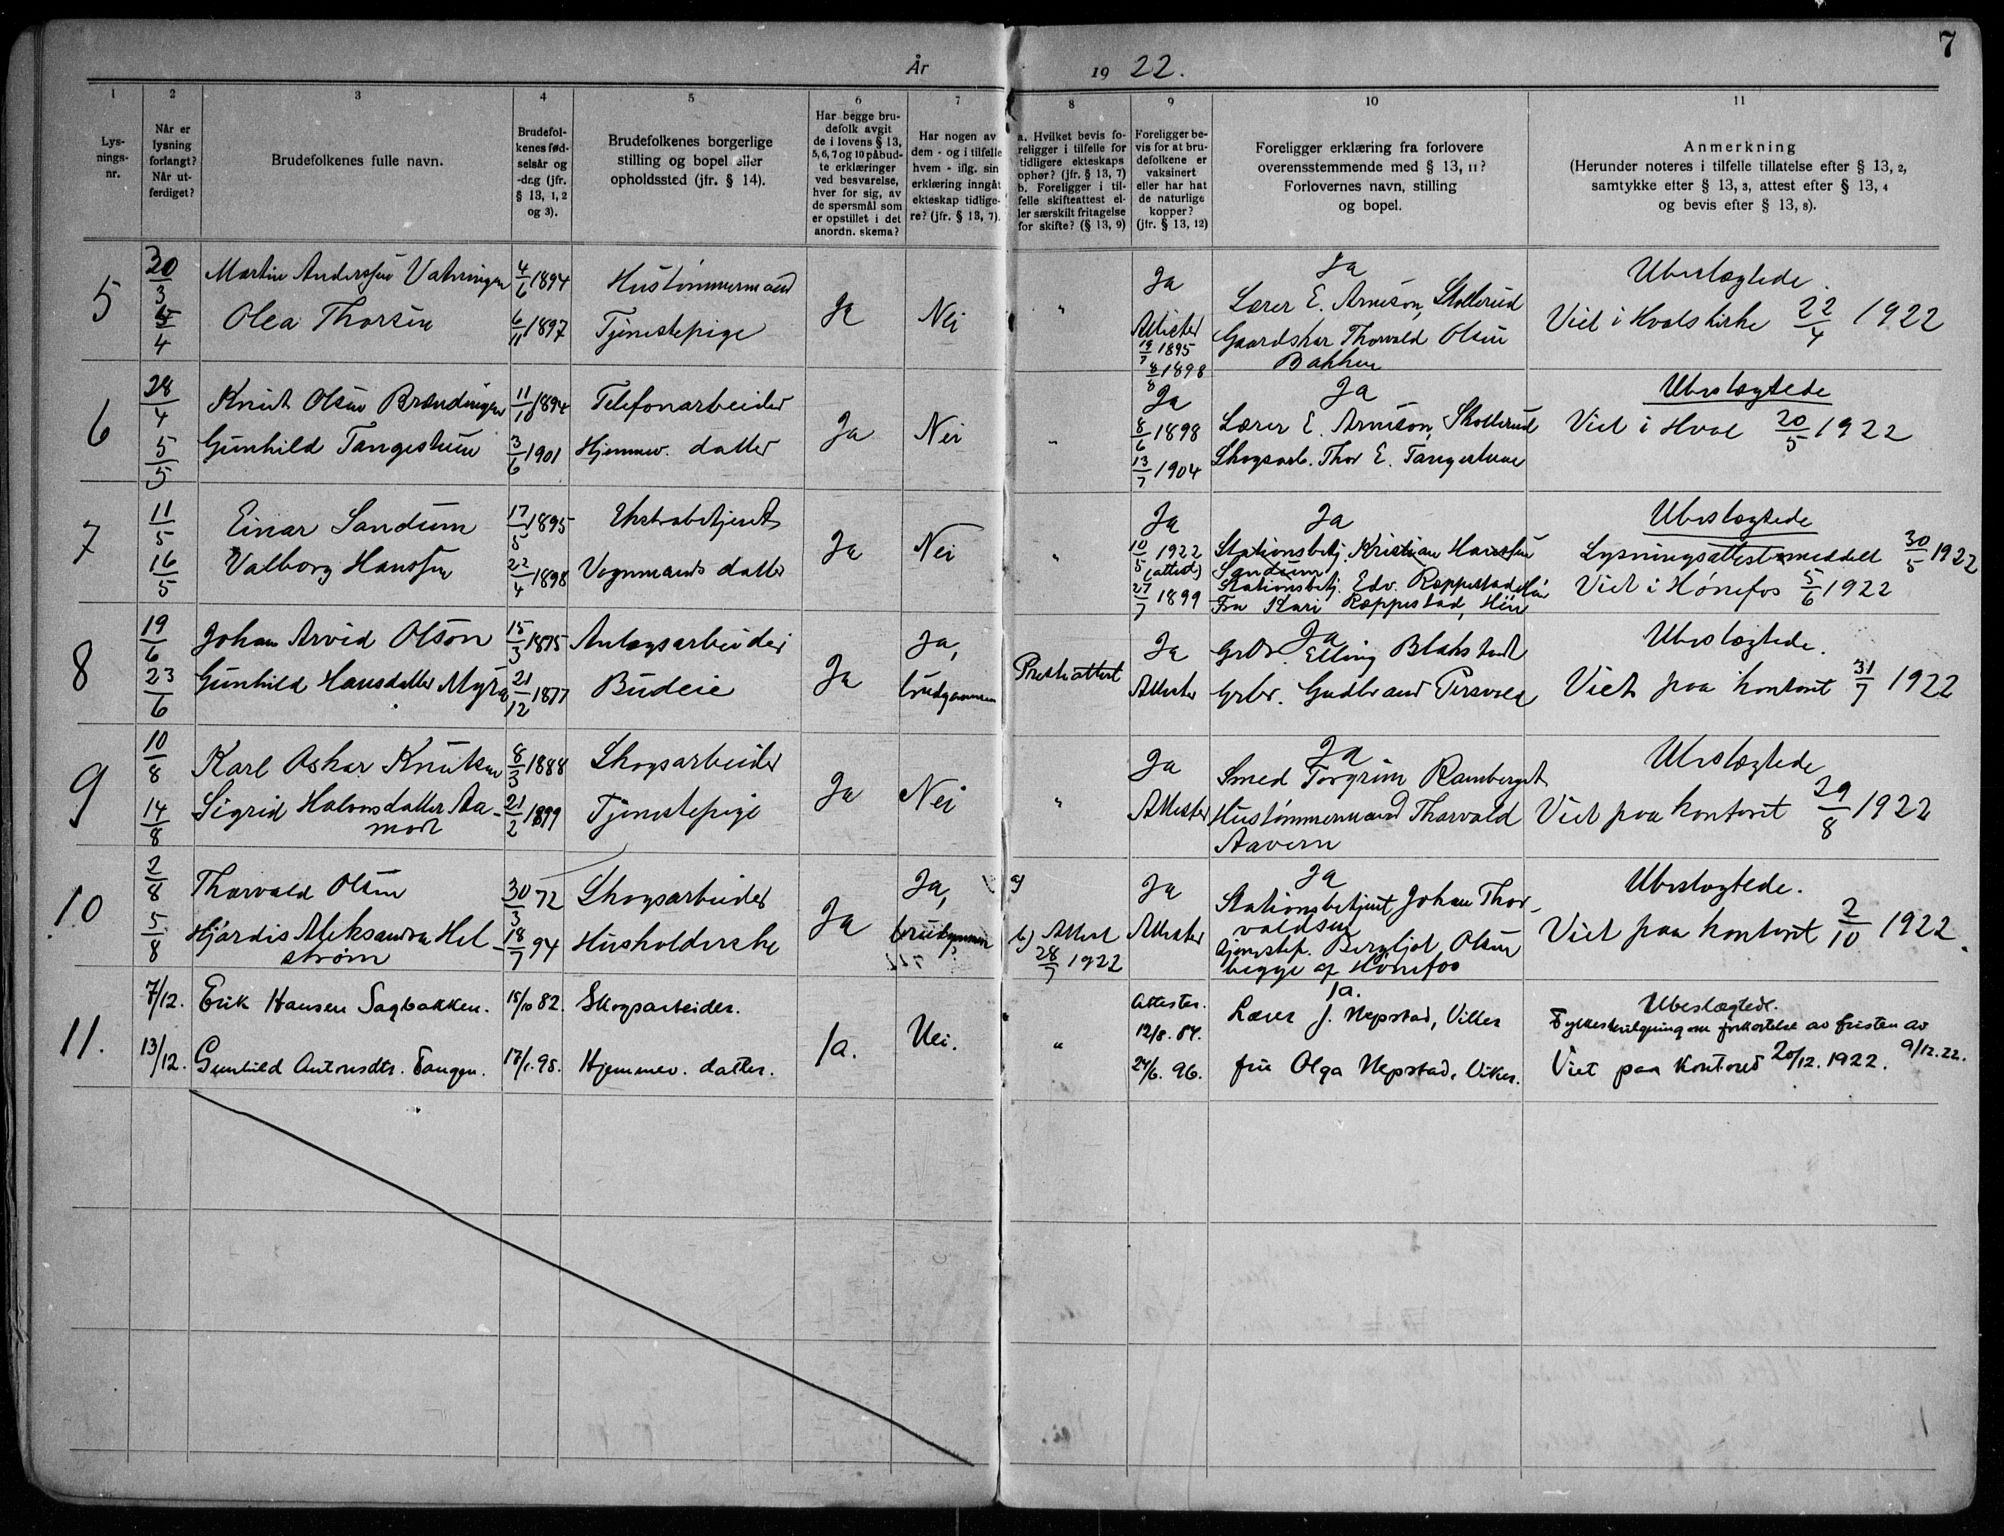 7
År 1922.
1 2 3 4 5 6 7 8 9 10 11
Lysningsnr.
Når er lysning forlangt? Når utferdiget?
Brudefolkenes fulle navn.
Brudefolkenes fødselsår og -dag (jfr. § 13, 1, 2 og 3).
Brudefolkenes borgerlige stilling og bopel eller opholdssted (jfr. § 14).
Har begge brudefolk avgit de i lovens § 13, 5, 6, 7 og 10 påbudte erklæringer ved besvarelse, hver for sig, av de spørsmål som er opstillet i det anordn. skema?
Har nogen av dem - og i tilfelle hvem - iflg. sin erklæring inngåt ekteskap tidligere? (jfr. § 13, 7).
a. Hvilket bevis foreligger i tilfelle for tidligere ekteskaps ophør? (jfr. § 13, 7) b. Foreligger i tilfelle skifteattest eller særskilt fritagelse for skifte? (§ 13, 9)
Foreligger bevis for at brudefolkene er vaksinert eller har hat de naturlige kopper? (jfr. § 13, 12)
Foreligger erklæring fra forlovere overensstemmende med § 13, 11? Forlovernes navn, stilling og bopel.
Anmerkning (Herunder noteres i tilfelle tillatelse efter § 13, 2, samtykke efter § 13, 3, attest efter § 13, 4 og bevis efter § 13, 8).
5
30/3 Martin Anderssen 4/6 1894 Hustømmermand
4/4 Olea Thorsen 6/11 1897 Tjenestepige
Ja Nei "
Ja Attester 19/7 1895 8/8 1898
Ja
Lærer E. Arneson, Skollerud
Gaardskar Thorvald Olsen
Bakken
Ubeslægtede.
Viet i Hvals kirke 22/4 1922
6
28/4 Knut Olsen Brændingen 11/10 1894 Telefonarbeider
5/5 Gunhild Tangestuen 3/6 1901 Hjemmev. datter
Ja Nei "
Ja 8/6 1898 13/7 1904
Ja
Lærer E. Arneson, Skollerud
Skogsarb. Thor E. Tangestuen
Ubeslægtede
Viet i Hval 20/5 1922
7
11/5 Einar Sandum 17/5 1895 Ekstrabetjent
16/5 Valborg Hanssen 22/4 1898 Vognmands datter
Ja Nei "
Ja 10/5 1922 (attest) 27/7 1899
Ja
Stationsbetj. Kristian Hanssen
Sandum
Stationsbetj. Edv. Ræppestad
Fru Kari Ræppestad, Hen
Ubeslægtede
Lysningsattest meddelt 30/5 1922
Viet i Hønefos 5/6 1922
8
19/6 Johan Arvid Olson 15/3 1875 Anlægsarbeider
23/6 Gunhild Hansdatter Myra 21/12 1877 Budeie
Ja Ja, brudgommen
Presteattest
Ja Attester
Ja
Grbr. Elling Blakstad
Grbr. Gudbrand
Ubeslægtede.
Viet paa kontoret 31/7 1922
9
10/8 Karl Oskar Knutsen 8/3 1888 Skogsarbeider
14/8 Sigrid Halvorsdatter Aa-
modt 21/2 1899 Tjenestepige
Ja Nei "
Ja Attester
Ja
Smed Torgrim Ramberget
Hustømmermand Thorvald
Aavern
Ubeslægtede
Viet paa kontoret 29/8 1922
10
2/8 Thorvald Olsen 30/3 72 Skogsarbeider
5/8 Hjørdis Aleksandra Hel-
strøm 18/7 94 Husholderske
Ja Ja, brudgommen
a)
b) Attest 28/7 1922
Ja Attester
Ja
Stationsbetjent Johan Thor-
valdsen
Tjenestep. Bergljot Olsen
begge af Hønefos
Ubeslægtede.
Viet paa kontoret 2/10 1922.
11.
7/12. Erik Hansen Sagbakken. 15/10 82. Skogsarbeider.
13/12. Gunhild Antonsdtr. Tangen. 17/1. 95. Hjemmev. datter.
Ja. Nei. "
Attester. 12/8. 84. 24/6. 96.
Ja.
Lærer J. Nepstad, Viker
frue Olga Nepstad, Viker.
Ubeslægtede.
Fylkesbevilgning om forkortelse av fristen av 9/12. 22.
Viet paa kontoret 20/12. 1922.